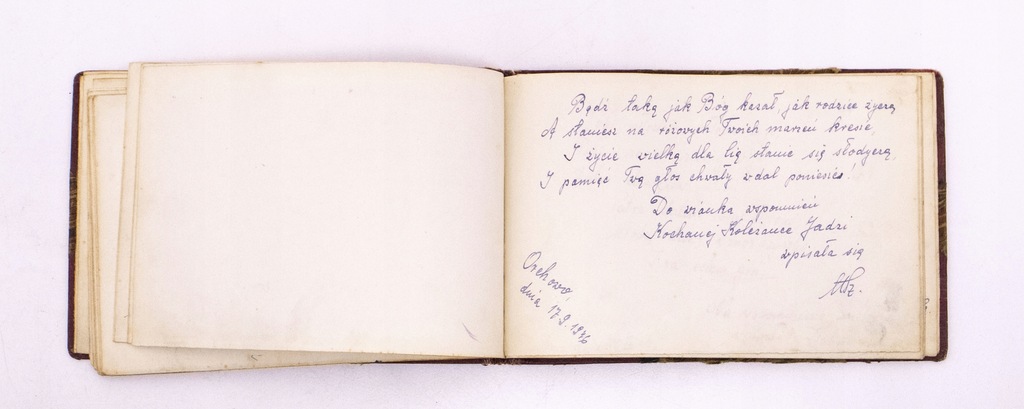 Bądź taką jak Bóg kazał, jak rodzice życzą
A staniesz na różowych Twoich marzeń kresie,
I życie wielką dla Cię stanie się słodyczą,
I pamięć Twą głos chwały w dal poniesie!
Do wianka wspomnień
Kochanej Koleżance Jadzi
wpisała się
MSz.
Orchowo,
dnia 17.9. 1936